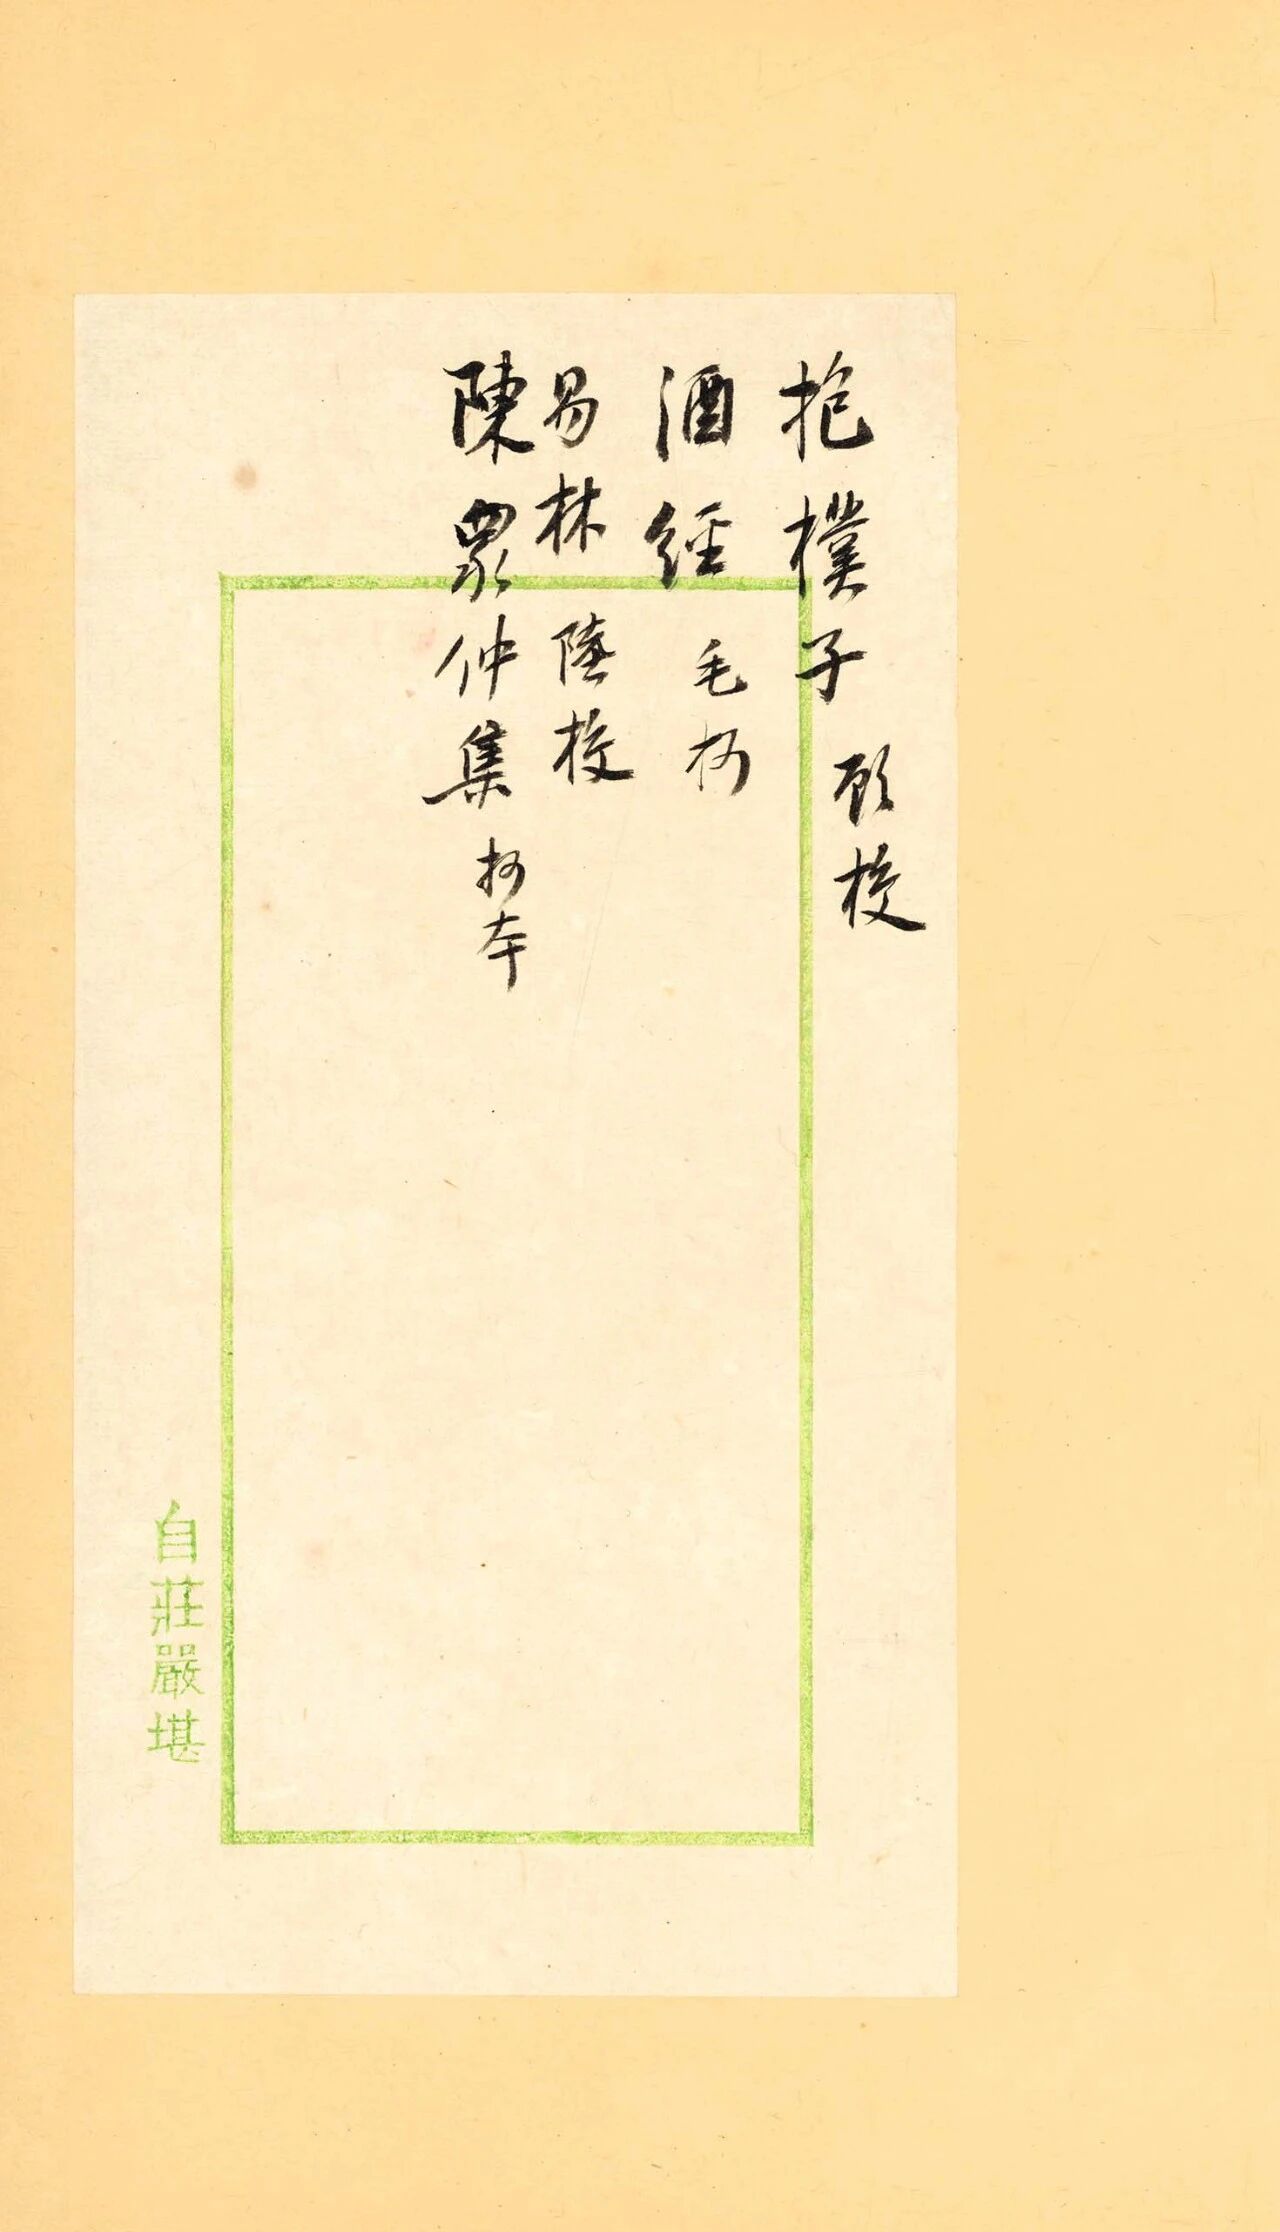 抱樸子 顧校
酒經 毛抄
易林 陸校
陳眾仲集 抄本
自莊嚴堪